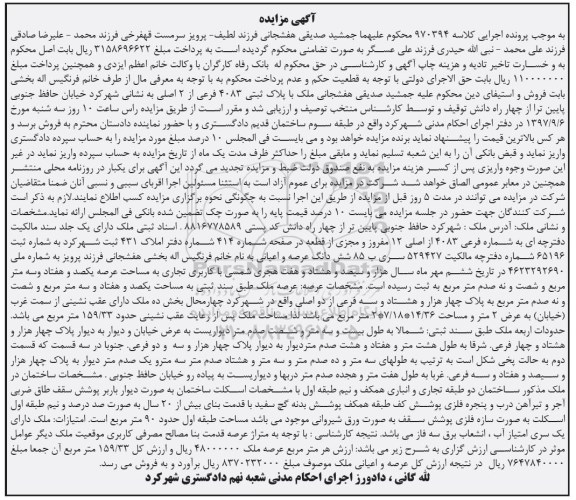 آگهی مزایده
به موجب پرونده اجرایی کلاسه ۹۷۰۳۹۴ محکوم علیهما جمشید صدیقی هفشجانی فرزند لطیف- پرویز سرمست قهفرخی فرزند محمد - علیرضا صادقی
فرزند علی محمد - نبی الله حیدری فرزند علی عسگر به صورت تضامنی محکوم گردیده است به پرداخت مبلغ ۳۱۵۸۶۹۶۶۲۲ ریال بابت اصل محکوم
به و خسارت تاخیر تادیه و هزینه چاپ آگهی و کارشناسی در حق محکوم له بانک رفاه کارگران با وکالت خانم اعظم ایزدی و همچنین پرداخت مبلغ
۱۱۰۰۰۰۰۰۰ ریال بابت حق الاجرای دولتی با توجه به قطعیت حکم و عدم پرداخت محکوم به با توجه به معرفی مال از طرف خانم فرنگیس اله بخشی
بابت فروش و استیفای دین محکوم علیه جمشید صدیقی هفشجانی ملک با پلاک ثبتی ۴۰۸۳ فرعی از ۲ اصلی به نشانی شهرکرد خیابان حافظ جنوبی
پایین ترا از چهار راه دانش توقیف و توسط کارشناس منتخب توصیف و ارزیابی شد و مقرر است از طریق مزایده راس ساعت ۱۰ روز سه شنبه مورخ
۱۳۹۷/۹/۶ در دفتر اجرای احکام مدنی شهرکرد واقع در طبقه سوم ساختمان قدیم دادگستری و با حضور نماینده دادستان محترم به فروش برسد و
هر کس بالاترین قیمت را پیشنهاد نماید برنده مزایده خواهد بود و می بایست فی المجلس ۱۰ درصد مبلغ مورد مزایده را به حساب سپرده دادگستری
واریز نماید و قبض بانکی آن را به این شعبه تسلیم نماید و مابقی مبلغ را حداکثر ظرف مدت یک ماه از تاریخ مزایده به حساب سپرده واریز نماید در غیر
این صورت وجوه واریزی پس از کسر هزینه مزایده به نفع صندوق دولت ضبط و مزایده تجدید می گردد این آگهی برای یکبار در روزنامه محلی منتشر
همچنین در معابر عمومی الصاق خواهد شد شرکت در مزایده برای عموم آزاد است به استثنا مسئولین اجرا اقربای سببی و نسبی آنان ضمنا متقاضیان
شرکت در مزایده می توانند در مدت ۵ روز قبل از مزایده از طریق این اجرا نسبت به چگونگی نحوه برگزاری مزایده کسب اطلاع نمایند.لازم به ذکر است
شرکت کنندگان جهت حضور در جلسه مزایده می بایست ۱۰ درصد قیمت پایه را به صورت چک تضمین شده بانکی فی المجلس ارائه نماید.مشخصات
و نشانی ملک: آدرس ملک : شهرکرد حافظ جنوبی پایین تر از چهار راه دانش کد پستی ۸۸۱۶۷۷۸۵۸۹ . اسناد ثبتی ملک دارای یک جلد سند مالکیت
دفترچه ای به شماره فرعی ۴۰۸۳ از اصلی ۱۲ مفروز و مجزی از قطعه در صفحه شماره ۴۱۴ شماره دفتر املاک ۴۳۱ ثبت شهرکرد به شماره ثبت
۶۵۱۹۶ شماره دفترچه مالکیت ۵۲۹۴۲۷ سری ب ۸۵ شش دانگ عرصه و اعیانی به نام خانم فرنگیس اله بخشی هفشجانی فرزند پرویز به شماره ملی
۴۶۲۳۲۹۲۶۹۰ در تاریخ ششم مهر ماه سال هزار و
مربع و شصت و نه صدم متر مربع به ثبت رسیده است مشخصات عرصه: عرصه ملک طبق سند ثبتی به مساحت یکصد و هفتاد و سه متر مربع و شصت
و نه صدم متر مربع به پلاک چهار هزار و هشتاد و سه فرعی از دو اصلی واقع در شهرکرد چهارمحال بخش ده ملک دارای عقب نشینی از سمت غرب
(خیابان) به عرض ۲ متر و مساحت
حدودات اربعه ملک طبق سند ثبتی: شمالا به طول
هشتاد و چهار فرعی. شرقا به طول هشت متر و هفتاد و هشت صدم متردیوار به دیوار پلاک چهار هزار و سه و دو فرعی. جنوبا در سه قسمت که قسمت
دوم به حالت پخی شکل است به ترتیب به طولهای سه متر و ده صدم متر و سه متر و هشتاد صدم متر سه مترو یک صدم متر دیوار به پلاک چهار هزار
و سیصد و هفتاد و سه فرعی. غربا به طول هفت متر و هجده صدم متر دربها و دیواریست به پیاده رو خیابان حافظ جنوبی . مشخصات ساختمان در
ملک مذکور ساختمان دو طبقه تجاری و انباری همکف و نیم طبقه اول با مشخصات اسکلت ساختمان به صورت دیوار باربر پوشش سقف طاق ضربی
آجر و تیرآهن درب و پنجره فلزی پوشش کف طبقه همکف پوشش بدنه گچ سفید با قدمت بنای بیش از ۲۰ سال به صورت صد درصد و نیم طبقه اول
اسکلت به صورت سازه فلزی پوشش سقف به صورت ورق شیروانی موجود می باشد مساحت طبقه اول حدود ۹۰ متر مربع است. امتیازات: ملک دارای
یک سری امتیاز آب ، انشعاب برق سه فاز می باشد. نتیجه کارشناسی : با توجه به متراژ عرصه قدمت بنا مصالح مصرفی کاربری موقعیت ملک دیگر عوامل
موثر در کارشناسی ارزش گزاری به شرح زیر می باشد: ارزش هر متر مربع عرصه ملک ۴۸۰۰۰۰۰۰ ریال و ارزش کل ۱۵۹/۳۳ متر مربع آن جمعا مبلغ
۷۶۴۷۸۴۰۰۰۰ ریال در نتیجه ارزش کل عرصه و اعیانی ملک موصوف مبلغ ۸۳۷۰۲۳۲۰۰۰ ریال برآورد و به فروش می رسد.
لله گانی ، دادورز اجرای احکام مدنی شعبه نهم دادگستری شهرکرد